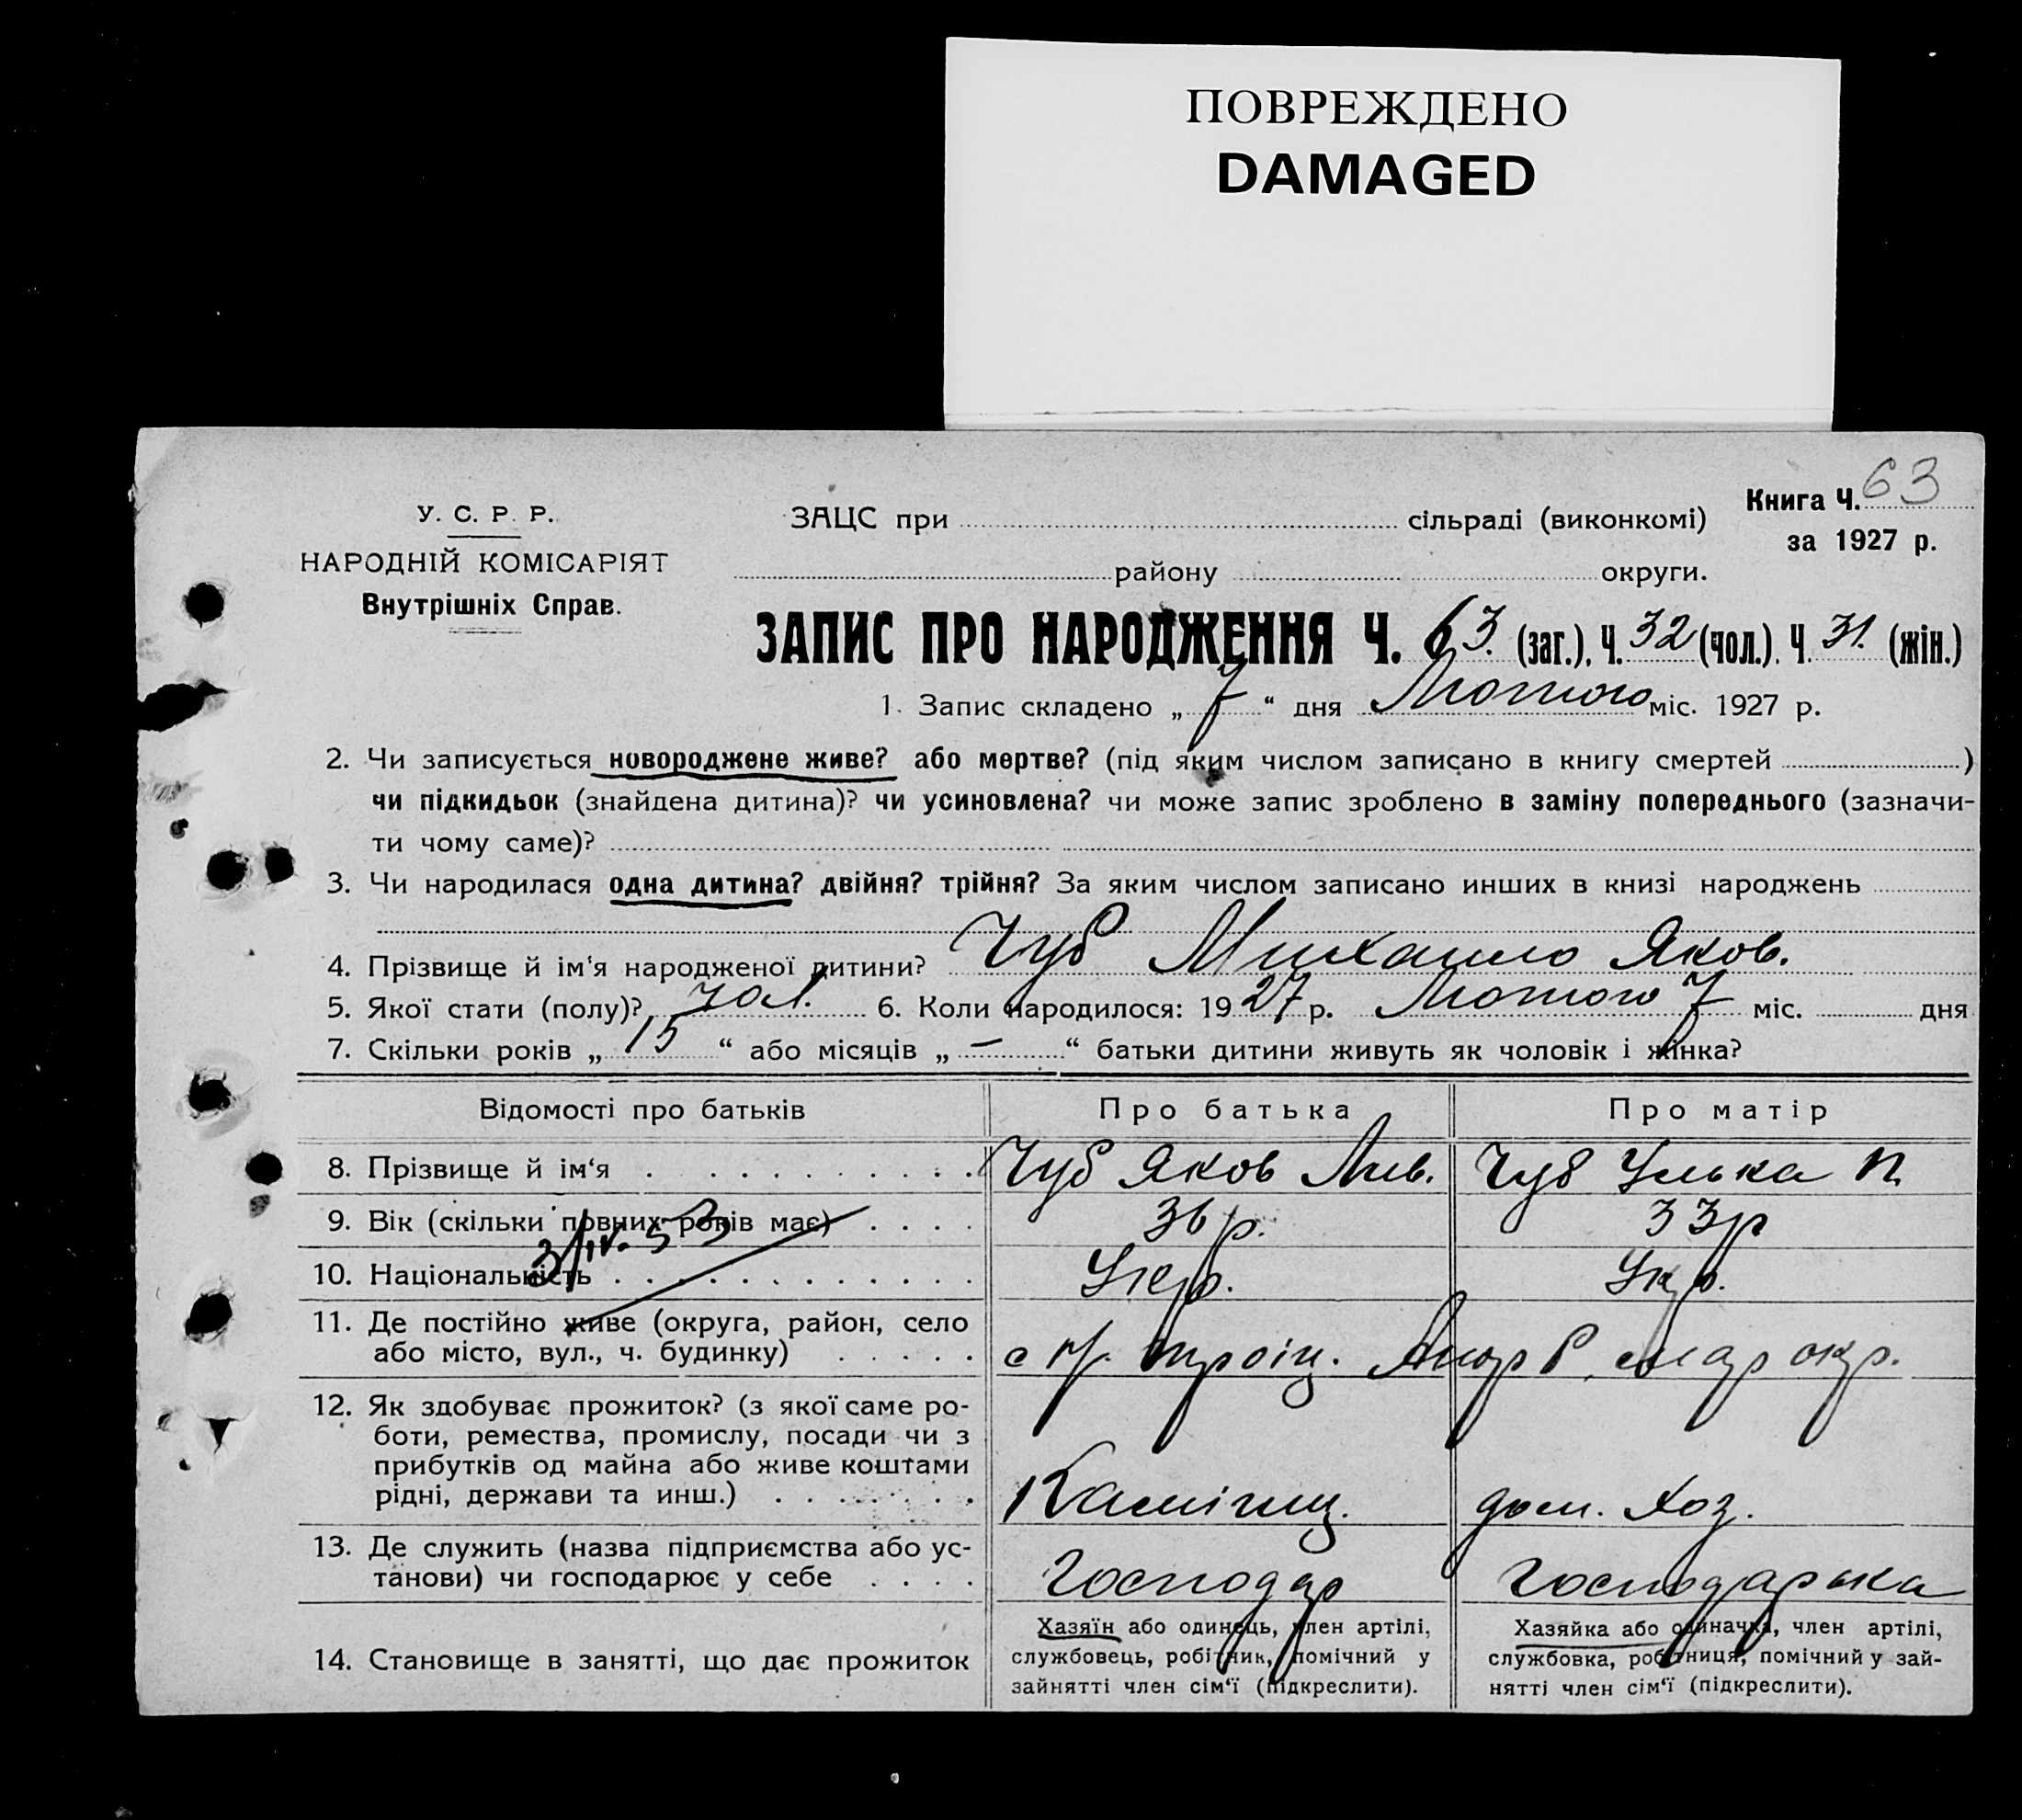 ПОВРЕЖДЕНО
DAMAGED
Книга Ч. 63
за 1927 р.
У. С. Р. Р.
НАРОДНІЙ КОМІСАРІЯТ
Внутрішніх Справ.
ЗАЦС при сільраді (виконкомі)
району округи.
ЗАПИС ПРО НАРОДЖЕННЯ Ч. 63. (заг.), Ч. 32 (чол.), Ч. 31. (жін.)
1. Запис складено „ 7 “ дня Лютого міс. 1927 р.
2. Чи записується новороджене живе? або мертве? (під яким числом записано в книгу смертей )
чи підкидьок (знайдена дитина)? чи усиновлена? чи може запис зроблено в заміну попереднього (зазначи-
ти чому саме)?
3. Чи народилася одна дитина? двійня? трійня? За яким числом записано инших в книзі народжень
4. Прізвище й ім'я народженої дитини? Чуб Михайло Яков.
5. Якої стати (полу)? чол. 6. Коли народилося: 1927 р. Лютого 7 міс. дня
7. Скільки років „ 15 “ або місяців „ — “ батьки дитини живуть як чоловік і жінка?
Відомості про батьків Про батька Про матір
8. Прізвище й ім'я Чуб Яков Чуб Улька П.
9. Вік (скільки повних років має) 36 р. 33 р
3/IV. 53
10. Національність Укр. Укр.
11. Де постійно живе (округа, район, село
або місто, вул., ч. будинку) с Троіц. окр.
12. Як здобуває прожиток? (з якої саме ро-
боти, ремества, промислу, посади чи з
прибутків од майна або живе коштами
рідні, держави та инш.) дом. хоз.
13. Де служить (назва підприємства або ус-
танови) чи господарює у себе Господар Господарька
14. Становище в занятті, що дає прожиток
Хазяїн або одинець, член артілі,
службовець, робітник, помічний у
зайнятті член сім'ї (підкреслити).
Хазяйка або одиначка, член артілі,
службовка, робітниця, помічний у зай-
нятті член сім'ї (підкреслити).